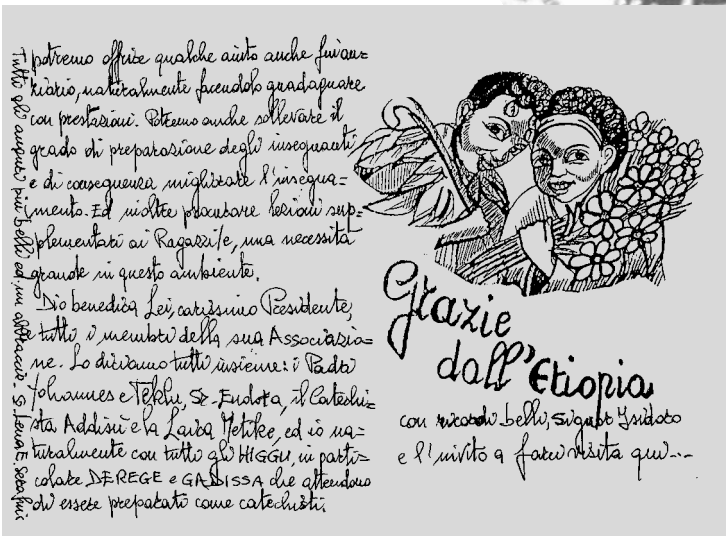 potremo offrire qualche aiuto anche finan=
ziario, naturalmente facendolo guadagnare
con prestazioni. Potremo anche sollevare il
grado di preparazione degli insegnanti
e di conseguenza migliorare l'insegna=
mento. Ed inoltre procurare lezioni sup=
plementari ai Ragazzi/e, una necessità
grande in questo ambiente.
Dio benedica Lei, carissimo Presidente,
e tutti i membri della sua Associazio=
ne. Lo diciamo tutti insieme: i Padri
Johannes e Tekhi, Sr. Endota, il Catechi=
sta Addisù e la Laica Metike, ed io na=
turalmente con tutti gli HIGGU, in parti=
colare DEREGE e GADISSA che attendono
di essere preparati come catechisti.
Tutti gli auguri più belli ed un abbraccio. Sr Lena E. Serafini
Grazie
dall'Etiopia
con ricordi belli, Signor Isidoro
e l'invito a farci visita qui...